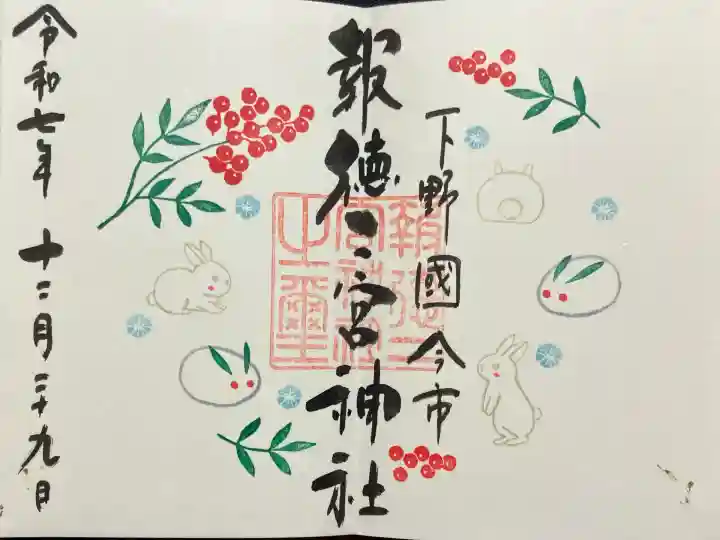 下野國今市
報徳二宮神社
報徳二宮神社之璽
令和七年 十二月二十九日